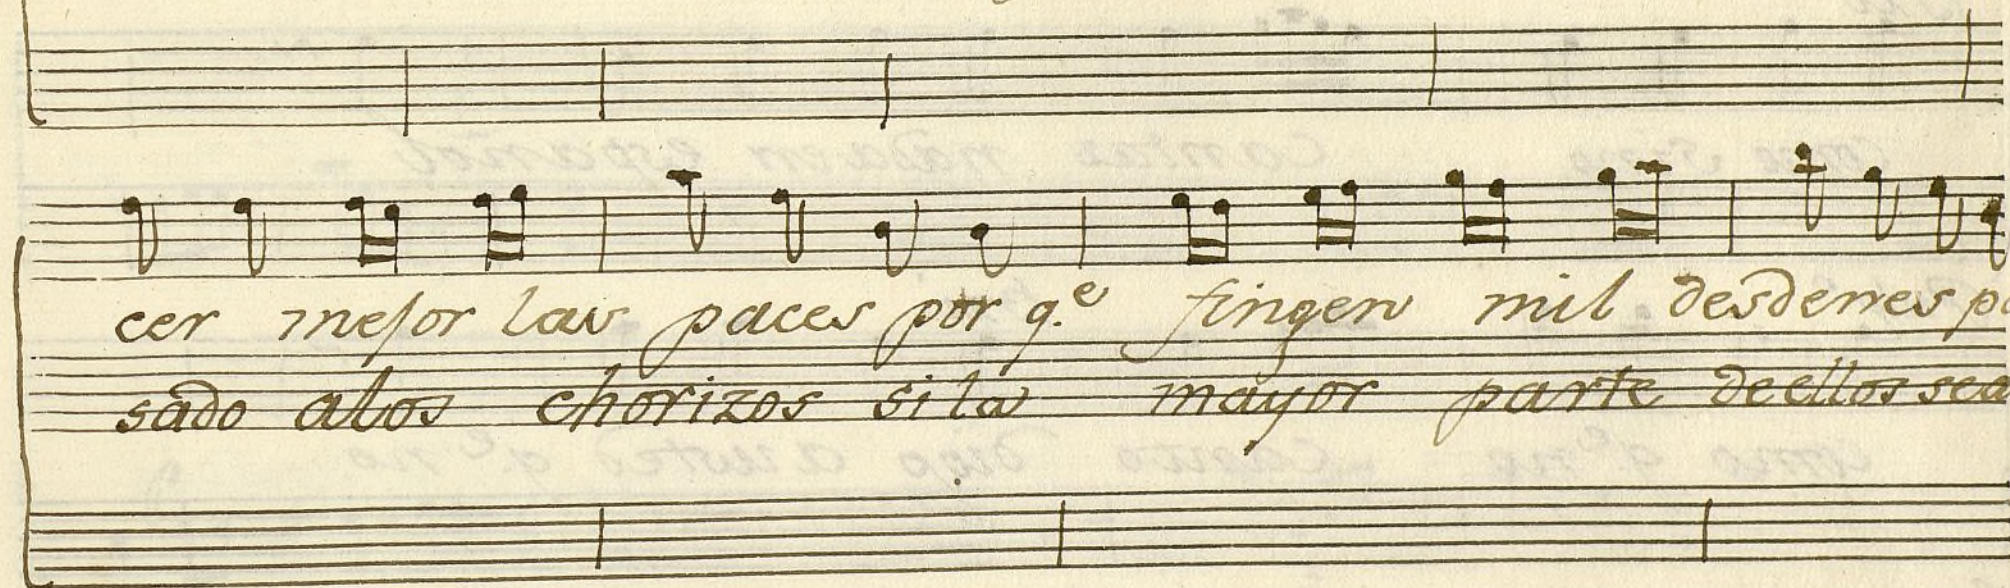 cer mejor las paces por q.e fingen mil desdenes
sado alos chorizos si la mayor parte deellos sea